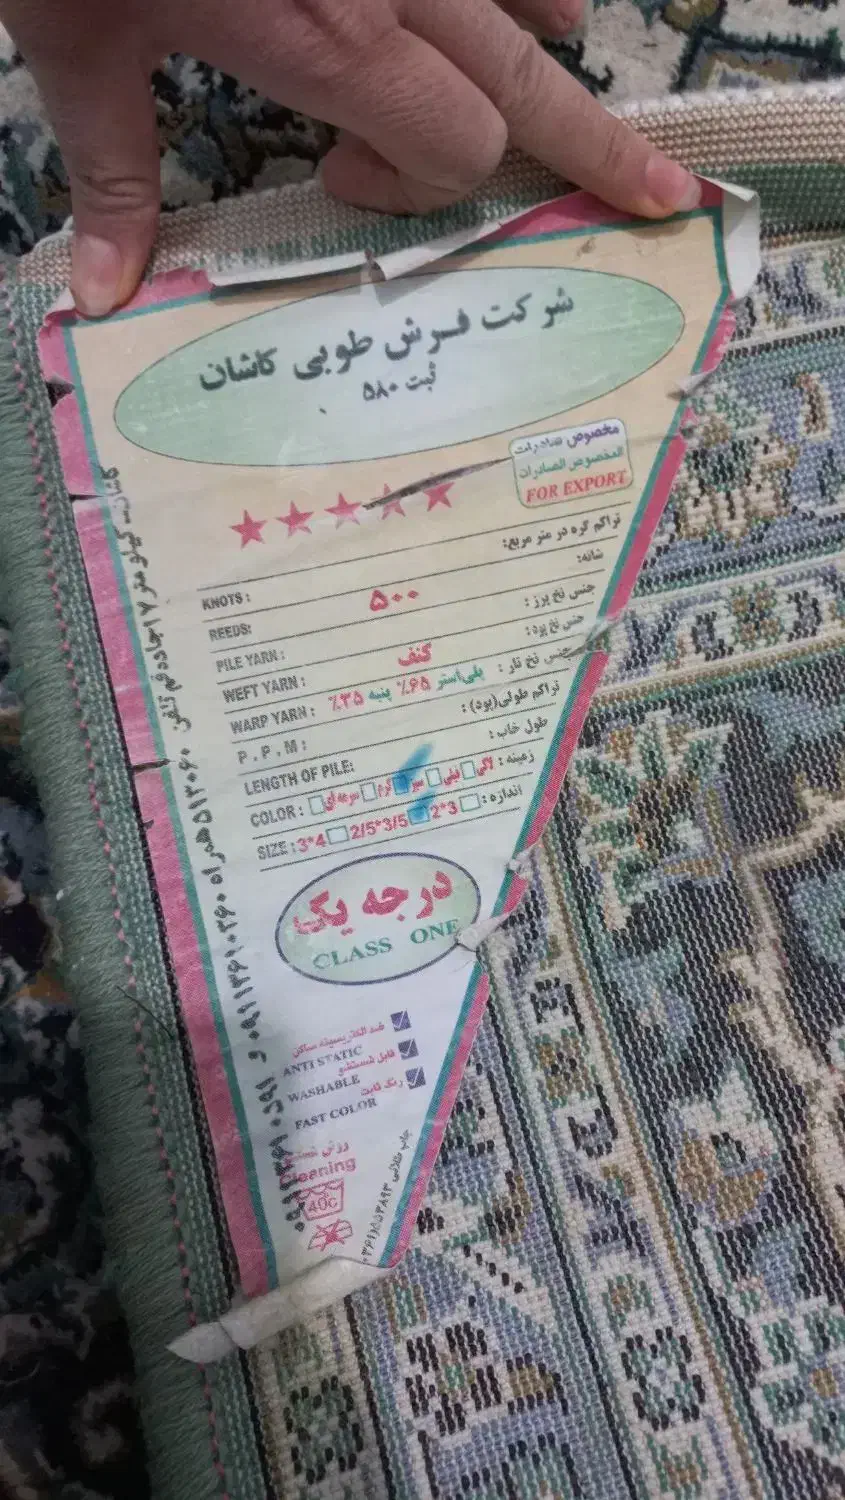 شرکت فرش طوبی کاشان
ثبت ۵۸۰
مخصوص صادرات
المخصوص الصادرات
FOR EXPORT
KNOTS : تراکم گره در متر مربع:
REEDS: ۵۰۰ شانه:
PILE YARN : جنس نخ پرز :
WEFT YARN : کنف جنس نخ پود :
WARP YARN : پلی‌استر ۶۵٪ پنبه ۳۵٪ جنس نخ تار :
P . P . M : تراکم طولی(پود) :
LENGTH OF PILE: طول خاب :
COLOR : سرمه‌ای کرم سبز نیلی لاکی زمینه :
SIZE : 3*4 2/5*3/5 2*3 اندازه :
درجه یک
CLASS ONE
ضد الکتریسیته ساکن
ANTI STATIC
قابل شستشو
WASHABLE
رنگ ثابت
FAST COLOR
روش
Cleaning
40c